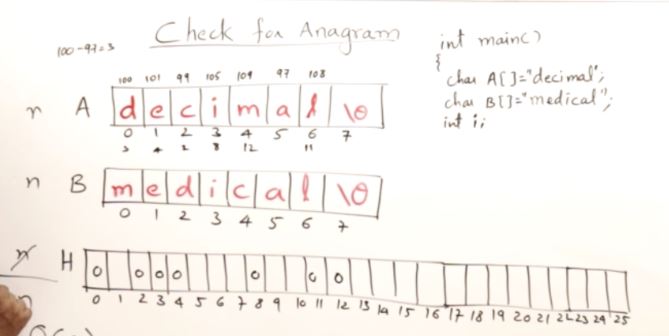 Check for Anagram
100-97=3
int main()
{
char A[]="decimal";
char B[]="medical";
int i;
100 101 99 105 109 97 108
n A d e c i m a l \0
0 1 2 3 4 5 6 7
3 4 2 8 12 11
n B m e d i c a l \0
0 1 2 3 4 5 6 7
n H 0 0 0 0 0 0 0
0 1 2 3 4 5 6 7 8 9 10 11 12 13 14 15 16 17 18 19 20 21 22 23 24 25
n